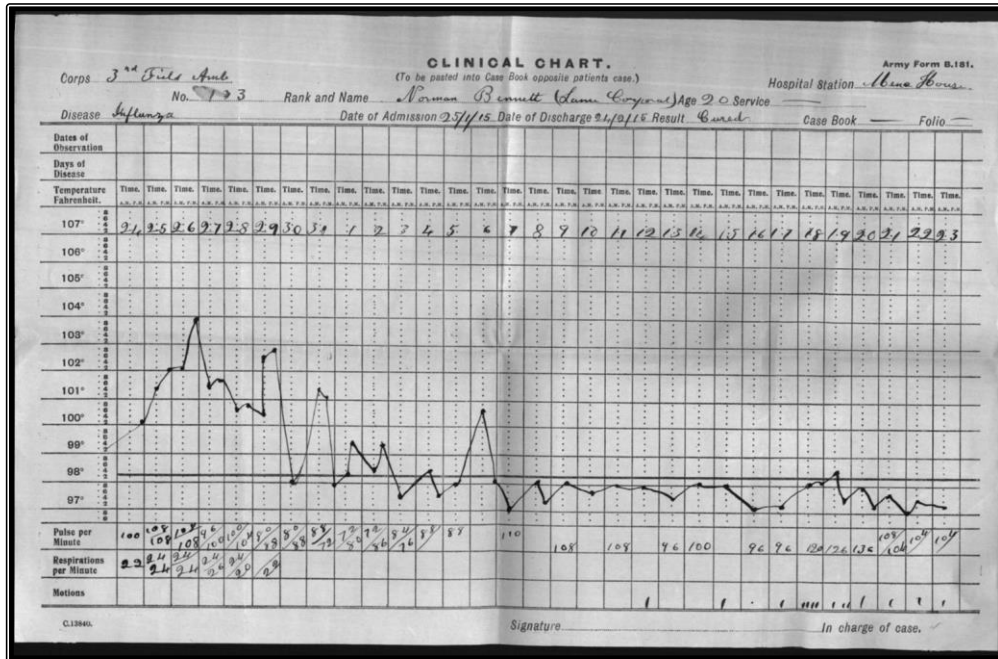 CLINICAL CHART.
Army Form B.181.
(To be pasted into Case Book opposite patients case.)
Corps 3rd Field Amb
Hospital Station Mena House
No. Rank and Name Norman Bennett (Lance Corporal) Age 20 Service —
Disease Influenza Date of Admission 25/1/15 Date of Discharge 24/2/15 Result Cured Case Book — Folio —
Dates of Observation
Days of Disease
Temperature Fahrenheit. Time. Time. Time. Time. Time. Time. Time. Time. Time. Time. Time. Time. Time. Time. Time. Time. Time. Time. Time. Time. Time. Time. Time. Time. Time. Time. Time. Time. Time. Time. Time.
A.M. P.M. A.M. P.M. A.M. P.M. A.M. P.M. A.M. P.M. A.M. P.M. A.M. P.M. A.M. P.M. A.M. P.M. A.M. P.M. A.M. P.M. A.M. P.M. A.M. P.M. A.M. P.M. A.M. P.M. A.M. P.M. A.M. P.M. A.M. P.M. A.M. P.M. A.M. P.M. A.M. P.M. A.M. P.M. A.M. P.M. A.M. P.M. A.M. P.M. A.M. P.M. A.M. P.M. A.M. P.M. A.M. P.M. A.M. P.M. A.M. P.M.
107° 24 25 26 27 28 29 30 31 1 2 3 4 5 6 7 8 9 10 11 12 13 14 15 16 17 18 19 20 21 22 23
106°
105°
104°
103°
102°
101°
100°
99°
98°
97°
Pulse per Minute 100 108/108 108/108 96/100 100/104 80/88 80/88 88/72 72/80 72/86 84/76 88 88 110 108 108 96 100 96 96 120 126 136 108/104 104 104
Respirations per Minute 22 24/24 24/24 24/26 24/20 /22
Motions
C.13840.
Signature In charge of case.